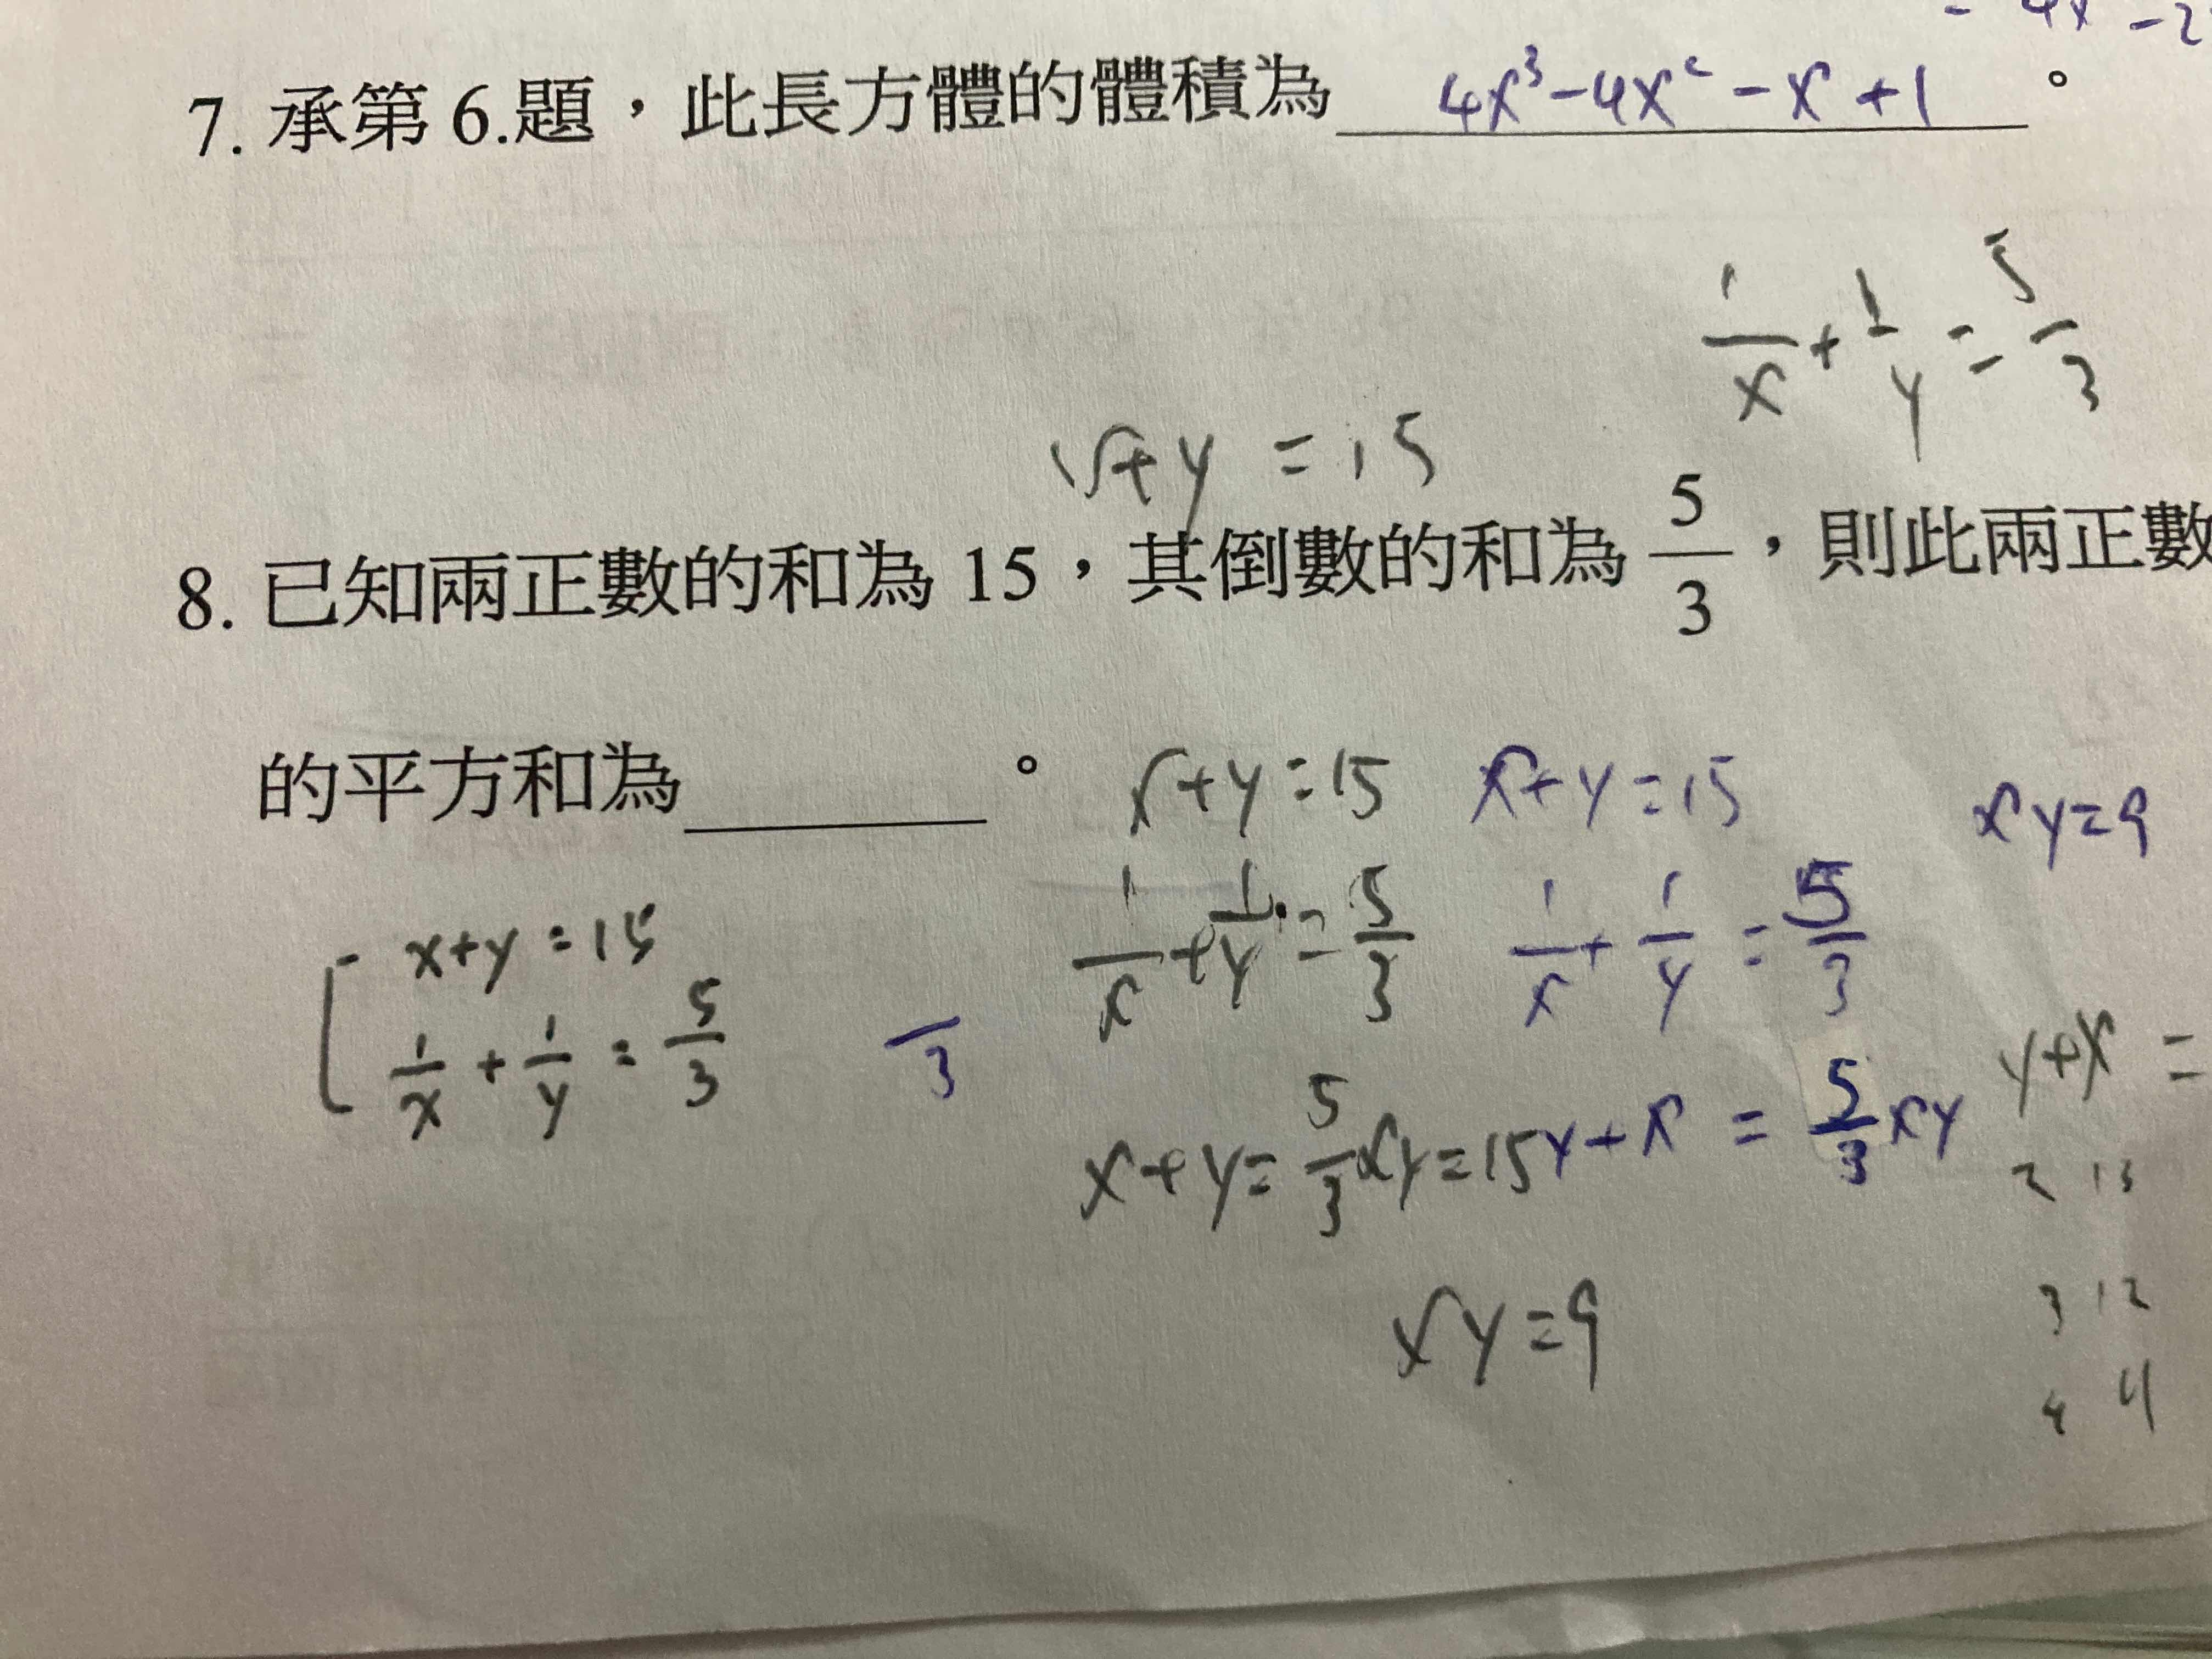 = 4x -2
7. 承第 6.題，此長方體的體積為 4x³-4x²-x+1 。
1/x + 1/y = 5/3
x+y = 15
8. 已知兩正數的和為 15，其倒數的和為 5/3，則此兩正數
的平方和為 。
x+y=15 x+y=15 xy=9
1/x + 1/y = 5/3 1/x + 1/y = 5/3
x+y=15
1/x + 1/y = 5/3
3
y+x =
x+y= 5/3 xy=15 y+x = 5/3 xy
2 13
xy=9
3 12
4 4